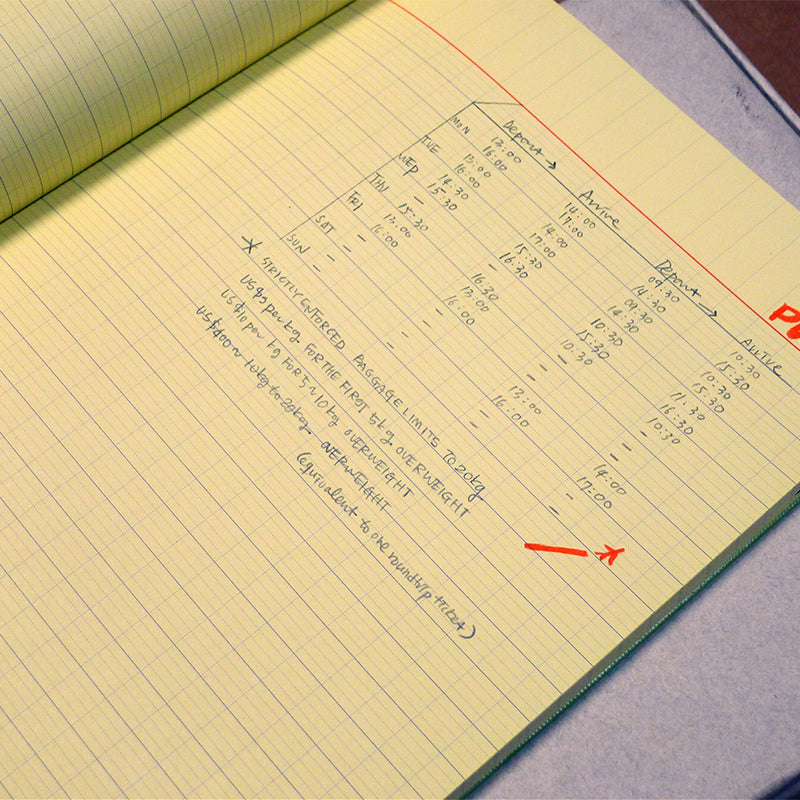 Depart → Arrive Depart → Arrive
MON 12:00 14:00 09:30 10:30
16:00 17:00 14:30 15:30
TUE 13:00 14:00 09:30 10:30
16:00 17:00 14:30 15:30
WED 14:30 15:30 10:30 11:30
15:30 16:30 15:30 16:30
THU – – 10:30 10:30
15:30 16:30 – –
FRI 13:00 13:00 – –
16:00 16:00 – –
SAT – – 13:00 14:00
– – 16:00 17:00
SUN – – – –
* STRICTLY ENFORCED BAGGAGE LIMITS TO 20kg
US$9 per kg. FOR THE FIRST 5kg OVERWEIGHT
US$10 per kg FOR 5~10kg OVERWEIGHT
US$400~ 10kg to 20kg. OVERWEIGHT
(equivalent to one roundtrip ticket)